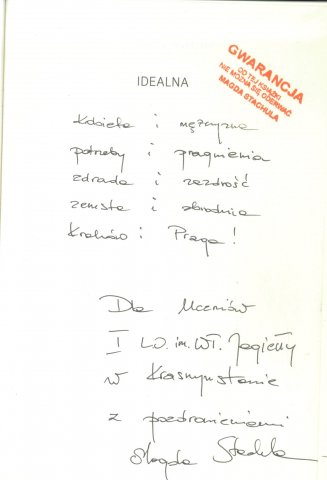 IDEALNA
GWARANCJA
OD TEJ KSIĄŻKI
NIE MOŻNA SIĘ ODERWAĆ
MAGDA STACHULA
Kobieta i mężczyzna
potrzeby i pragnienia
zdrada i zazdrość
zemsta i zbrodnia
Kraków i Praga!
Dla Uczniów
I LO. im. Wł. Jagiełły
w Krasnymstawie
z pozdrowieniami
Magda Stachula